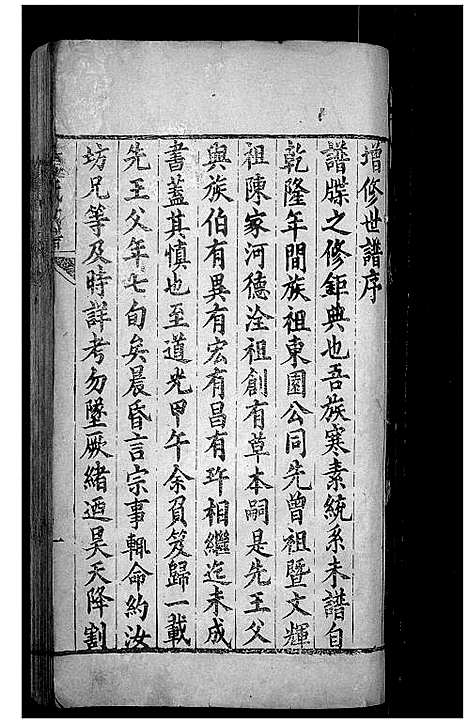 增修世譜序
譜牒之修鉅典也吾族寒素統系未譜自
乾隆年間族祖東園公同先曾祖暨文輝
祖陳家河德淦祖創有草本嗣是先王父
與族伯有異有宏有昌有玝相繼迄未成
書蓋其慎也至道光甲午余負笈歸一載
先王父年七旬矣晨昏言宗事輒命約汝
坊兄等及時詳考勿墜厥緒迺昊天降割
一